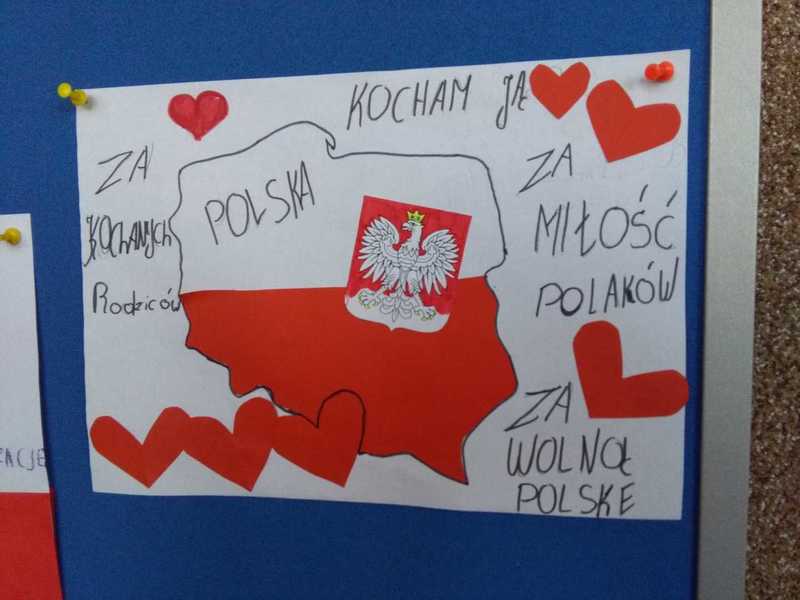 KOCHAM JĄ
POLSKA
ZA
KOCHANYCH
Rodziców
ZA
MIŁOŚĆ
POLAKÓW
ZA
WOLNOŁ
POLSKE